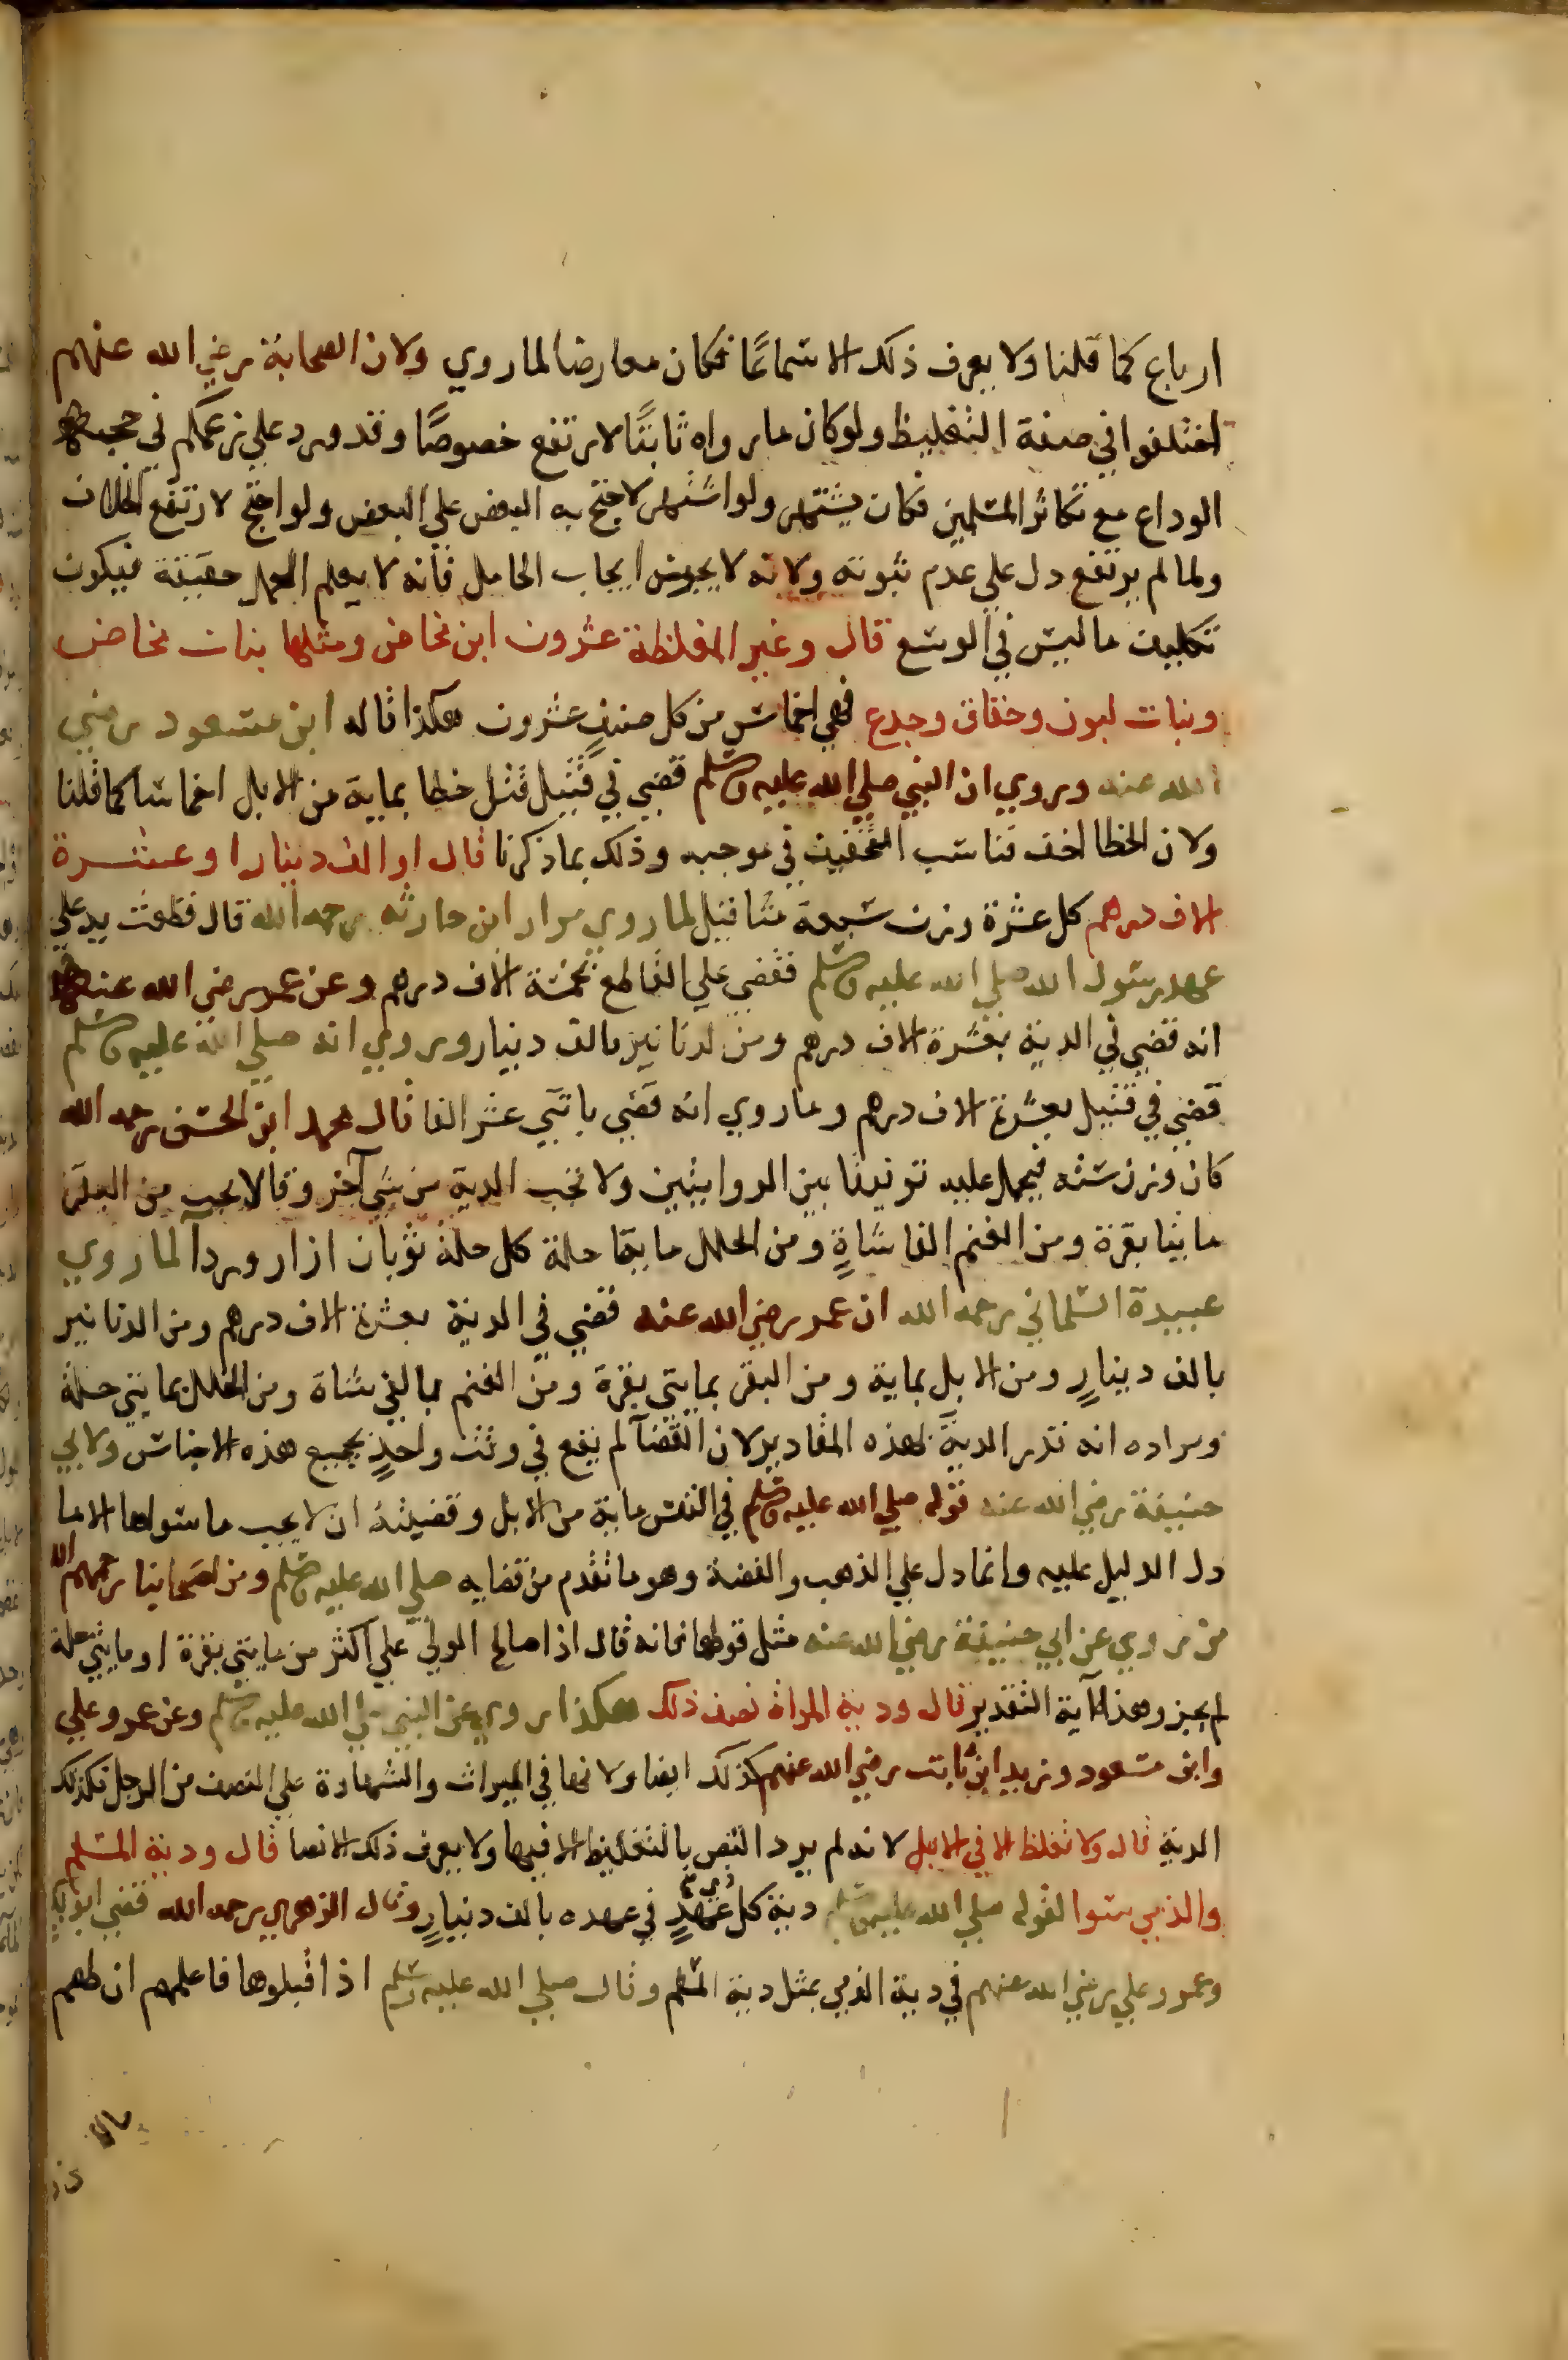 ارباع كما قلنا ولا يعرف ذلك الا سماعًا فكان معارضا لما روي ولان الصحابة رضي الله عنهم
اختلفوا في صفة التغليظ ولو كان ما رواه ثابتًا لارتفع خصوصًا وقد ورد علي زعمكم في حجة
الوداع مع تكاثر المسلمين فكان يشتهر ولو اشتهر لاحتج به البعض علي البعض ولو احتج لارتفع الخلاف
ولما لم يرتفع دل علي عدم ثبوته ولانه لا يجوز ايجاب الحامل فانه لا يعلم الحمل حقيقة فيكون
تكليف ما ليس في الوسع قال وغير المغلظة عشرون ابن مخاض ومثلها بنات مخاض
وبنات لبون وحقاق وجدع فهي اخماس من كل صنف عشرون هكذا قاله ابن مسعود رضي
الله عنه وروي ان النبي صلي الله عليه وسلم قضي في قتيل قتل خطا بماية من الابل اخماسا كما قلنا
ولان الخطا اخف فناسب التخفيف في موجبه وذلك بما ذكرنا قال او الف دينار او عشرة
الاف درهم كل عشرة وزن سبعة مثاقيل لما روي مرار ابن حارثه رحمه الله قال قطعت يد علي
عهد رسول الله صلي الله عليه وسلم فقضي علي القاطع بخمسة الاف درهم وعن عمر رضي الله عنه
انه قضي في الدية بعشرة الاف درهم ومن الدنانير بالف دينار وروي انه صلي الله عليه وسلم
قضي في قتيل بعشرة الاف درهم وما روي انه قضي باثني عشر الفا قال محمد ابن الحسن رحمه الله
كان وزن ستة فيحمل عليه توفيقا بين الروايتين ولا تجب الدية من شي آخر وقالا يجب من البقر
مايتا بقرة ومن الغنم الفا شاةٍ ومن الحلل مايتا حلة كل حلة ثوبان ازار وردآ لما روي
عبيدة السلماني رحمه الله ان عمر رضي الله عنه قضي في الدية بعشرة الاف درهم ومن الدنانير
بالف دينارٍ ومن الابل بماية ومن البقر بمايتي بقرة ومن الغنم بالفي شاة ومن الحلل بمايتي حلة
ومراده انه قدر الدية بهذه المقادير لان القضآ لم يقع في وقت واحدٍ بجميع هذه الاجناس ولابي
حنيفة رضي الله عنه قوله صلي الله عليه وسلم في النفس ماية من الابل وقضيته ان لا يجب ما سواها الا ما
دل الدليل عليه وانما دل علي الذهب والفضة وهو ما تقدم من قضايه صلي الله عليه وسلم ومن اصحابنا رحمهم الله
من روي عن ابي حنيفة رضي الله عنه مثل قولهما فانه قال اذا صالح الولي علي اكثر من مايتي بقرة او مايتي حلة
لم يجز وهذا آية التقدير قال ودية المراة نصف ذلك هكذا روي عن النبي صلي الله عليه وسلم وعن عمر وعلي
وابن مسعود وزيد ابن ثابت رضي الله عنهم كذلك ايضا ولانها في الميراث والشهادة علي النصف من الرجل فكذلك
الدية قال ولا تغلظ الا في الابل لانه لم يرد النص بالتغليظ الا فيها ولا يعرف ذلك الا نصا قال ودية المسلم
والذمي سوا لقوله صلي الله عليه وسلم دية كل ذي عهدٍ في عهده بالف دينارٍ وقال الزهري رحمه الله قضي ابو بكر
وعمر وعلي رضي الله عنهم في دية الذمي بمثل دية المسلم وقال صلي الله عليه وسلم اذا قبلوها فاعلمهم ان لهم